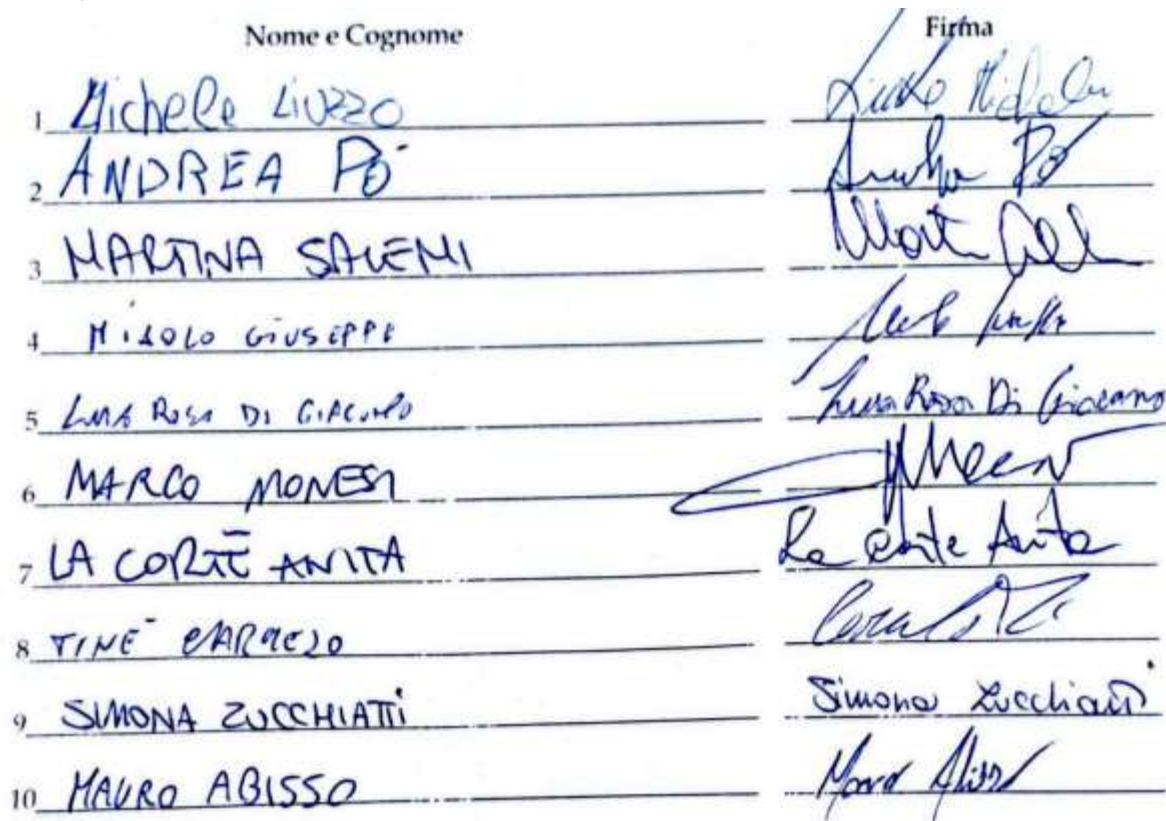 Nome e Cognome Firma
1 Michele Liuzzo Liuzzo Michele
2 ANDREA PÒ Andrea Pò
3 MARTINA SALEMI
4 GIUSEPPE
5 LUISA ROSA DI GIACOMO Luisa Rosa Di Giacomo
6 MARCO MONESI
7 LA CORTE ANITA La Corte Anita
8 TINÈ CARMELO
9 SIMONA ZUCCHIATTI Simona Zucchiatti
10 MAURO ABISSO Mauro Abisso